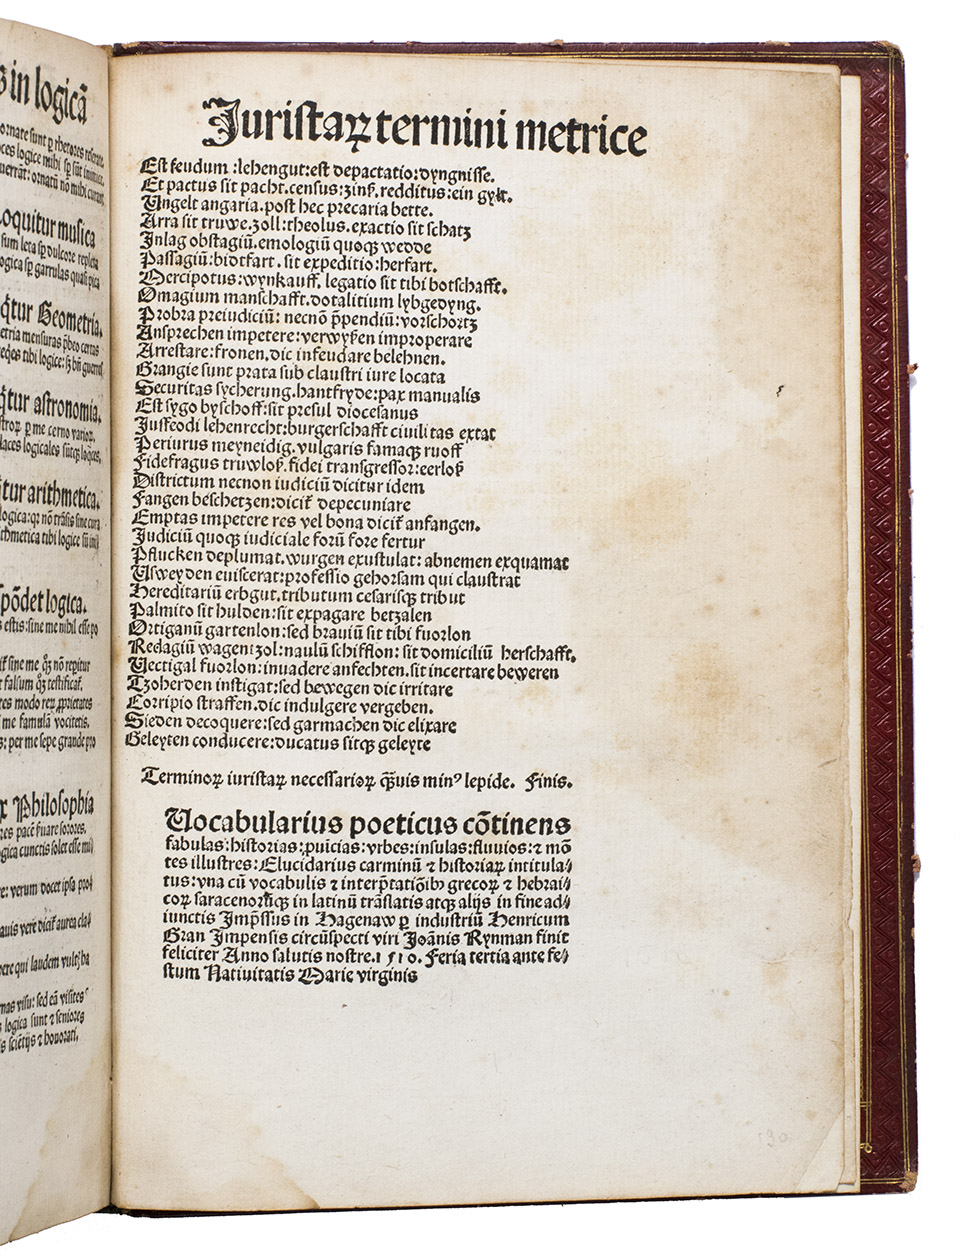 s in logicā
ornate sunt ꝑ rhetores referunt.
ces logice mihi sꝫ sūt inimice.
guerrāt: ornatū nō mihi curant
loquitur musica
sum leta sꝫ dulcore repleta
logica sꝫ garrulas quasi pica
q̄tur Geometria.
etria mensuras p̄beo certas
q̄tur astronomia.
laces logicales
q̄tur arithmetica.
logica: qꝛ nō trāsis sine cura
thmetica tibi logice sū
spōdet logica.
s estis: sine me nihil esse po
sine me nō repitur
t falsum testificat̄.
res modo reꝝ ꝓprietates
me famulā vocitetis.
s: per me sepe grande pro
x Philosophia
res pacē seruare sorores.
ogica cunctis solet esse
e: verum docet ipsa pro⸗
auis vere dicit̄ aurea cla⸗
bere qui laudem
mas visu: sed eā visites
s logica sunt ⁊ seniores
is sciētijs ⁊ honorati.
Juristaꝝ termini metrice
Est feudum :lehengut:est depactatio:dyngnisse.
Et pactus sit pacht.census:zinß.redditus:ein gylt.
Ungelt angaria.post hec precaria bette.
Arra sit truwe.zoll:theolus.exactio sit schatz
Inlag obstagiū.emologiū quoqꝫ wedde
Passagiū:bidtfart.sit expeditio:herfart.
Mercipotus:wynkauff. legatio sit tibi botschafft.
Omagium manschafft.dotalitium lybgedyng.
Probra preiudiciū: necnō ꝓpendiū:vorschortz
Ansprechen impetere:verwyßen improperare
Arrestare:fronen.dic infeudare belehnen.
Grangie sunt prata sub claustri iure locata
Securitas sycherung.hantfryde:pax manualis
Est sygo byschoff:sit presul diocesanus
Jusfeodi lehenrecht:burgerschafft ciuilitas extat
Periurus meyneidig.vulgaris famaqꝫ ruoff
Fidefragus truwloß.fidei transgressor:eerloß
Districtum necnon iudiciū dicitur idem
Fangen beschetzen:dicit̄ depecuniare
Emptas impetere res vel bona dicit̄ anfangen.
Judiciū quoqꝫ iudiciale forū fore fertur
Pflucken deplumat.wurgen exustulat: abnemen exquamat
Usweyden euiscerat:professio gehorsam qui claustrat
Hereditariū erbgut.tributum cesarisqꝫ tribut
Palmito sit hulden:sit expagare betzalen
Ortiganū gartenlon:sed brauiū sit tibi fuorlon
Redagiū wagen:zol:naulū schifflon: sit domiciliū herschafft.
Uectigal fuorlon:inuadere anfechten.sit incertare beweren
Tzoherden instigat:sed bewegen dic irritare
Corripio straffen.dic indulgere vergeben.
Sieden decoquere:sed garmachen dic elixare
Geleyten conducere:ducatus sitqꝫ geleyte
Terminoꝝ iuristaꝝ necessarioꝝ qꝫuis minꝰ lepide. Finis.
Uocabularius poeticus cōtinens
fabulas:historias:ꝓuīcias:vrbes:insulas:fluuios:⁊ mō
tes illustres:Elucidarius carminū ⁊ historiaꝝ intitula⸗
tus:vna cū vocabulis ⁊ interp̄tatiōibꝫ grecoꝝ ⁊ hebrai⸗
coꝝ saracenorūqꝫ in latinū trāslatis atqꝫ alijs in fine ad⸗
iunctis Imp̄ssus in Hagenaw ꝑ industriū Henricum
Gran Impensis circūspecti viri Joānis Rynman finit
feliciter Anno salutis nostre.1510. Feria tertia ante fe⸗
stum Natiuitatis Marie virginis
190